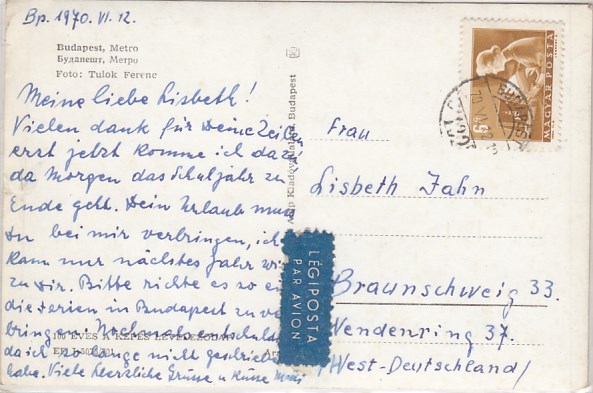 Bp. 1970. VI. 12.
Budapest, Metro
Будапешт, Метро
Foto: Tulok Ferenc
Meine liebe Lisbeth!
Vielen dank für Deine Zeilen
erst jetzt komme ich dazu
da Morgen das Schuljahr zu
Ende geht. Dein Urlaub musst
Du bei mir verbringen, ich
kann nur nächstes Jahr wi
zu Dir. Bitte richte es so ei
die Ferien in Budapest zu ve
bringen. Nochmals entschuld
da ich so lange nicht geschrieb
habe. Viele herzliche Grüsse u Küsse
100 ÉVES A KÉPES LEVELEZŐLAP
Kiadóvállalat, Budapest
MAGYAR POSTA
BUDAPEST
Frau
Lisbeth Jahn
LÉGIPOSTA
PAR AVION
Braunschweig 33.
Wendenring 37.
/West-Deutschland/